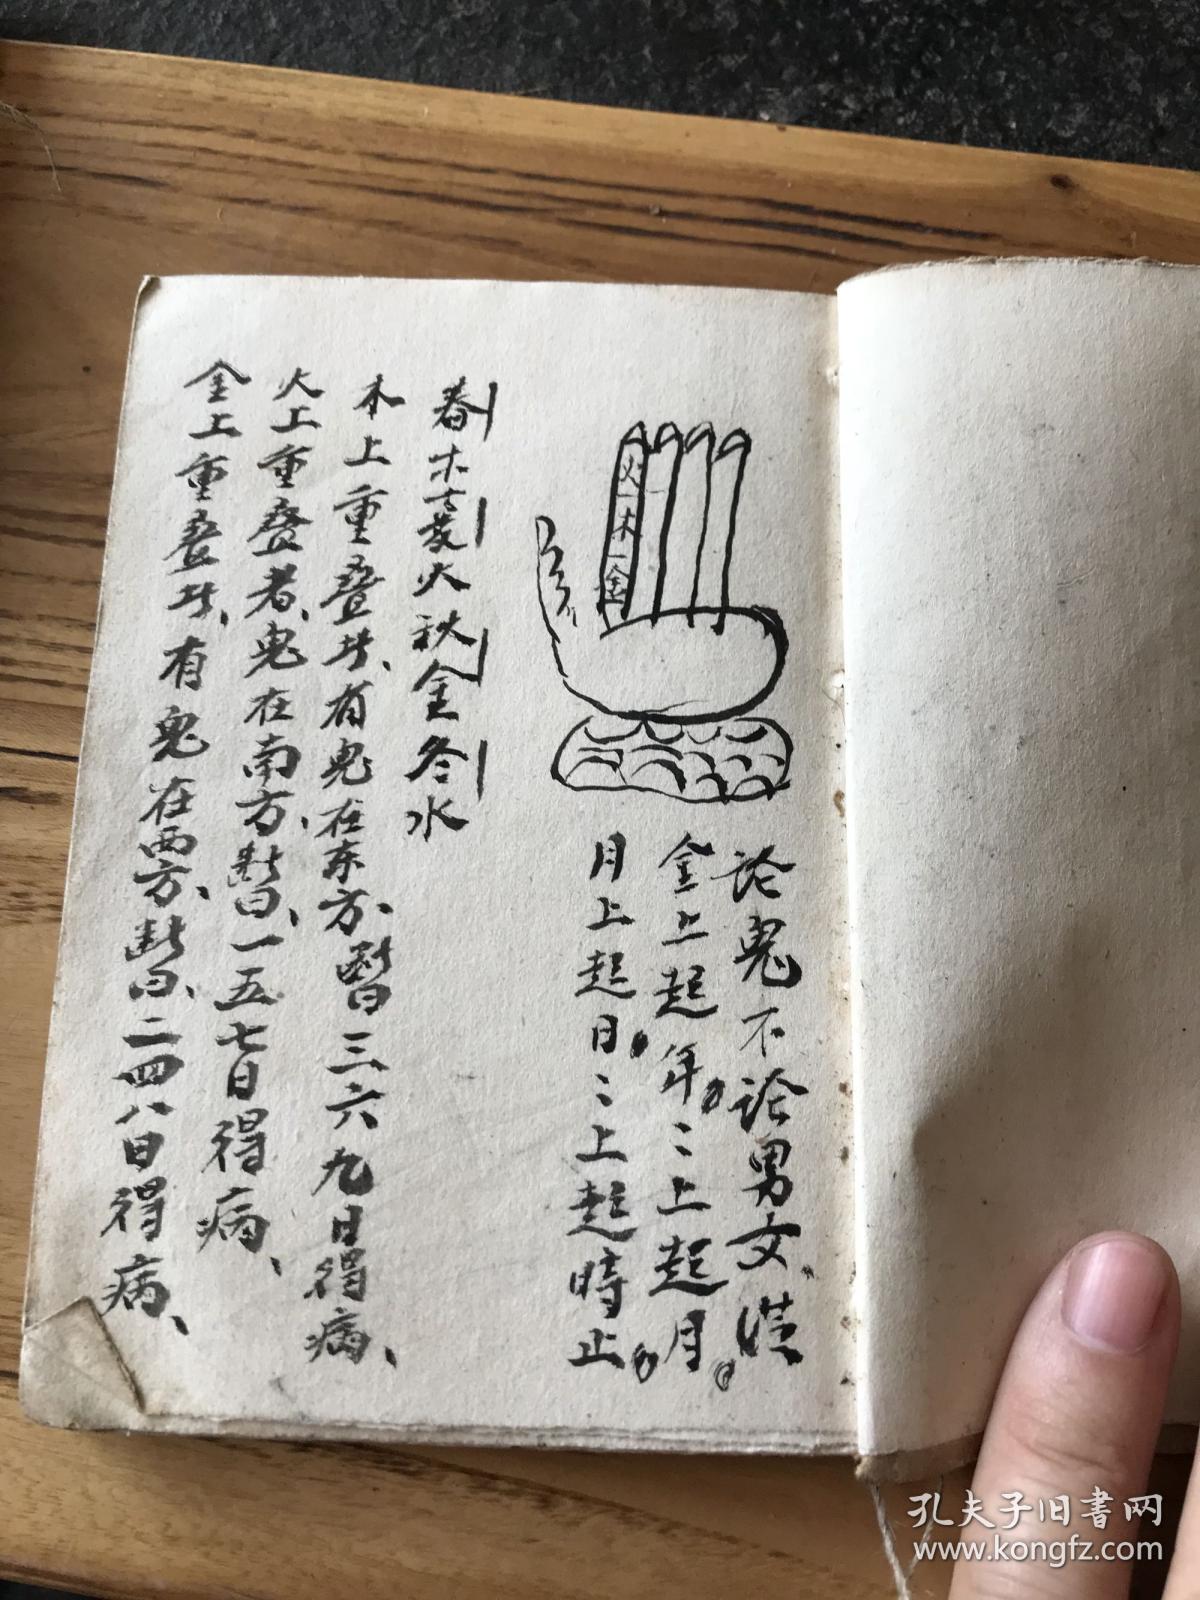 火一木一金
论鬼不论男女、从
金上起年。〻上起月。
月上起日。〻上起時止。
春木夏火秋金冬水
木上重叠者、有鬼在东方、三六九日得病、
火上重叠者、鬼在南方、一五七日得病、
金上重叠者、有鬼在西方、二四八日得病、
孔夫子旧书网
www.kongfz.com